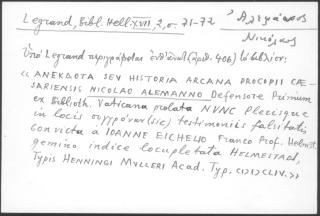 Legrand, Bibl. Hell. XVII, 2, σ. 71-72
Ἀλεμάννος
Νικόλαος
Ὑπὸ Legrand περιγράφεται (ἀριθ. 406) τὸ βιβλίον:
«ANEKDOTA SEV HISTORIA ARCANA PROCOPII CAE-
SARIENSIS NICOLAO ALEMANNO Defensore Primum
ex Biblioth. Vaticana prolata NVNC Plerisque
in locis συγχρόνων (sic) testimoniis falsitatis
convicta a IOANNE EICHELIO Franco Prof. Helmst.
gemino indice locupletata HELMESTADI,
Typis HENNINGI MVLLERI Acad. Typ. CIƆIƆCLIV.»